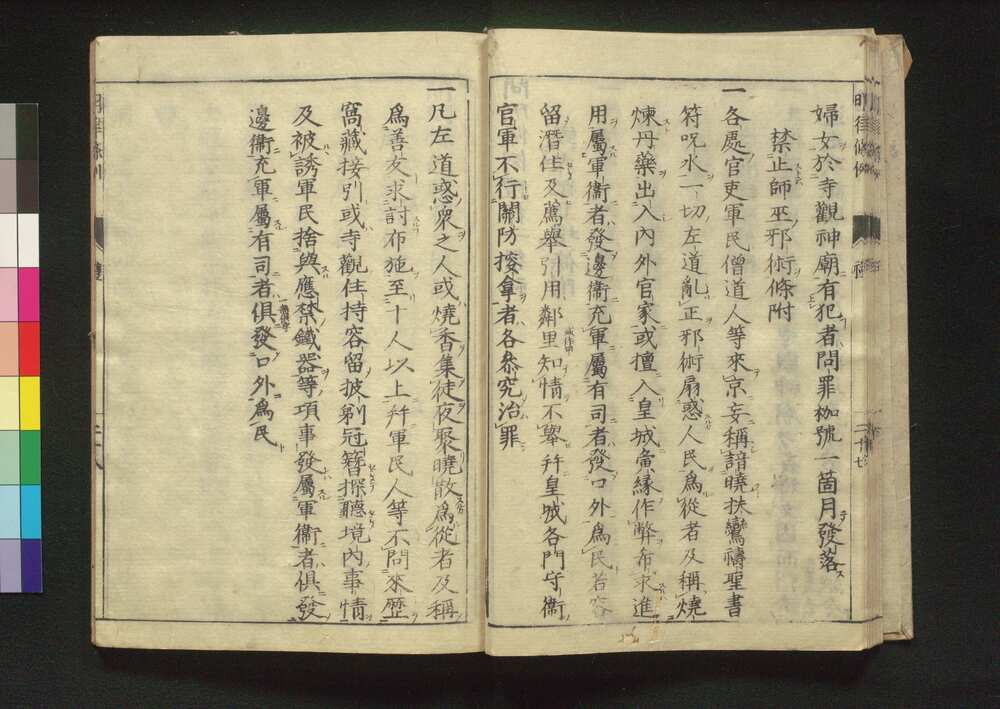 婦女於寺觀神廟有犯者問罪枷號一箇月發落
禁止師巫邪術條附
一各處官吏軍民僧道人等來京妄稱諳曉扶鸞禱聖書
符呪水一切左道亂正邪術扇惑人民爲從者及稱燒
煉丹藥出入內外官家或擅入皇城夤緣作弊希求進
用屬軍衞者發邊衞充軍屬有司者發口外爲民若容
留潛住及薦舉引用鄰里知情不舉幷皇城各門守衞
官軍不行關防搜拿者各叅究治罪
一凡左道惑衆之人或燒香集徒夜聚曉散爲從者及稱
爲善友求討布施至十人以上幷軍民人等不問來歷
窩藏接引或寺觀住持容留披剃冠簪探聽境內事情
及被誘軍民捨與應禁鐵器等項事發屬軍衞者俱發
邊衞充軍屬有司者俱發口外爲民